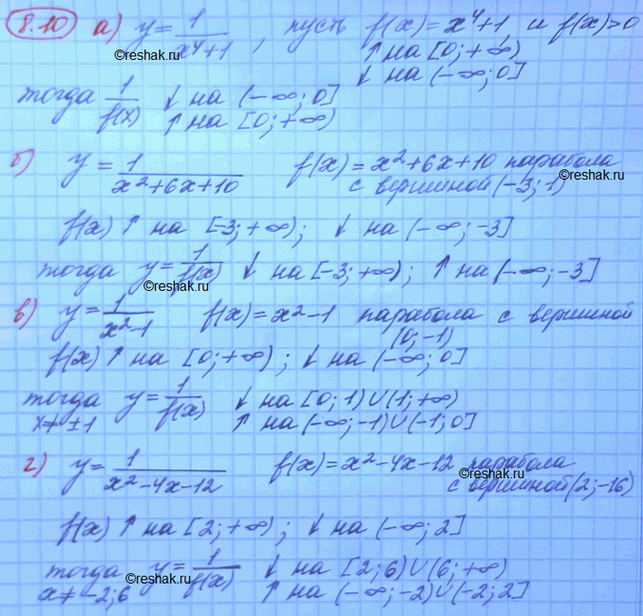 8.10 а) y = 1/(x⁴+1), пусть f(x) = x⁴+1, и f(x)>0
©reshak.ru
↑ на [0; +∞)
↓ на (-∞; 0]
тогда 1/f(x) ↓ на (-∞; 0]
↑ на [0; +∞)
б) y = 1/(x²+6x+10) f(x) = x²+6x+10 парабола
с вершиной (-3; 1)
©reshak.ru
f(x) ↑ на [-3; +∞); ↓ на (-∞; -3]
тогда y = 1/f(x) ↓ на [-3; +∞); ↑ на (-∞; -3]
©reshak.ru
в) y = 1/(x²-1) f(x) = x²-1 парабола с вершиной
(0; -1)
f(x) ↑ на [0; +∞); ↓ на (-∞; 0]
тогда y = 1/f(x) ↓ на [0; 1)∪(1; +∞)
x ≠ ±1 ↑ на (-∞; -1)∪(-1; 0]
г) y = 1/(x²-4x-12) f(x) = x²-4x-12 парабола
©reshak.ru
с вершиной (2; -16)
f(x) ↑ на [2; +∞); ↓ на (-∞; 2]
тогда y = 1/f(x) ↓ на [2; 6)∪(6; +∞)
©reshak.ru
x ≠ -2; 6 ↑ на (-∞; -2)∪(-2; 2]